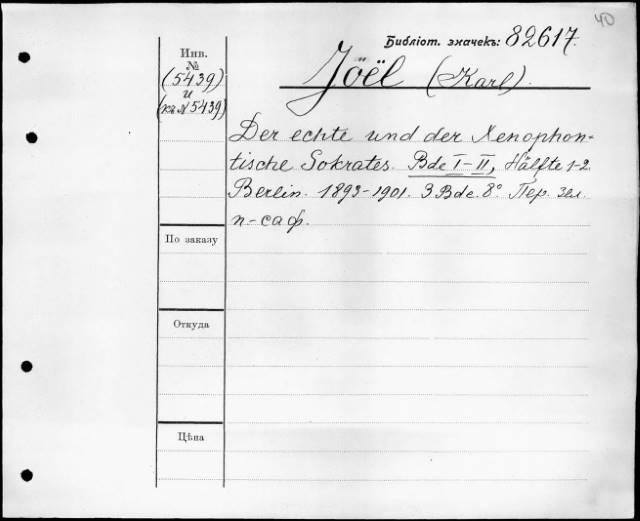 40
Библіот. значекъ: 82617.
Инв.
№
(5439)
и
(къ № 5439)
Jöël (Karl).
Der echte und der Xenophon-
tische Sokrates. Bde I-II, Hälfte 1-2.
Berlin. 1893-1901. 3 Bde. 8° Пер. зел.
п-саф.
По заказу
Откуда
Цѣна